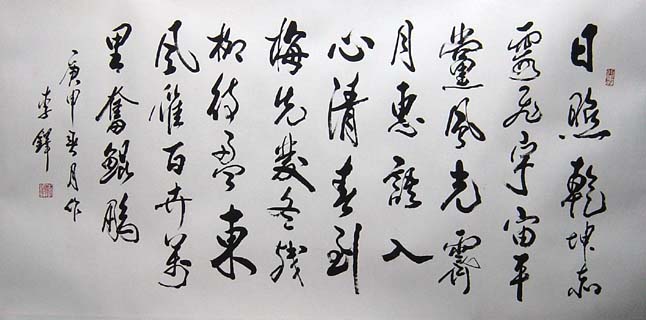 日照乾坤
霞飛宇宙平
黨風光霽
月惠語入
心清春到
梅先發冬殘
柳待盈東
風催百卉萬
里奮鯤鵬
庚申春月作
李鐸